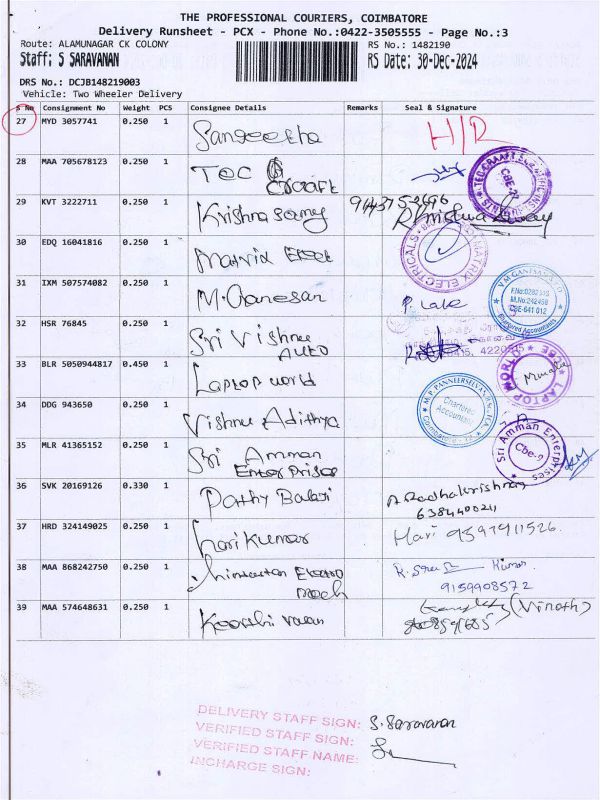 THE PROFESSIONAL COURIERS, COIMBATORE
Delivery Runsheet - PCX - Phone No.:0422-3505555 - Page No.:3
Route: ALAMUNAGAR CK COLONY
RS No.: 1482190
Staff: S SARAVANAN
RS Date: 30-Dec-2024
DRS No.: DCJB148219003
Vehicle: Two Wheeler Delivery
S No Consignment No Weight PCS Consignee Details Remarks Seal & Signature
27 MYD 3057741 0.250 1 Sangeetha H/R
28 MAA 705678123 0.250 1 TEC
Craaft
29 KVT 3222711 0.250 1 Krishna samy
30 EDQ 16041816 0.250 1 Matrix Elect
31 IXM 507574082 0.250 1 M. Ganesan
32 HSR 76845 0.250 1 Sri Vishnu
Auto
33 BLR 5050944817 0.450 1 Laptop world
LAPTOP WORLD CBE
34 DDG 943650 0.250 1 Vishnu Adithya
Chartered
Accountant
35 MLR 41365152 0.250 1 Sri Amman
Enterprises
Sri Amman Enterprises
Cbe-2
36 SVK 20169126 0.330 1 Pathy Balaji A. Radhakrishnan
37 HRD 324149025 0.250 1 hari Kumar Hari
38 MAA 868242750 0.250 1 hindustan Electro
mech
Kumar
9159908572
39 MAA 574648631 0.250 1 Keerthi vasan (Vinoth)
DELIVERY STAFF SIGN: S. Saravanan
VERIFIED STAFF SIGN:
VERIFIED STAFF NAME:
INCHARGE SIGN: